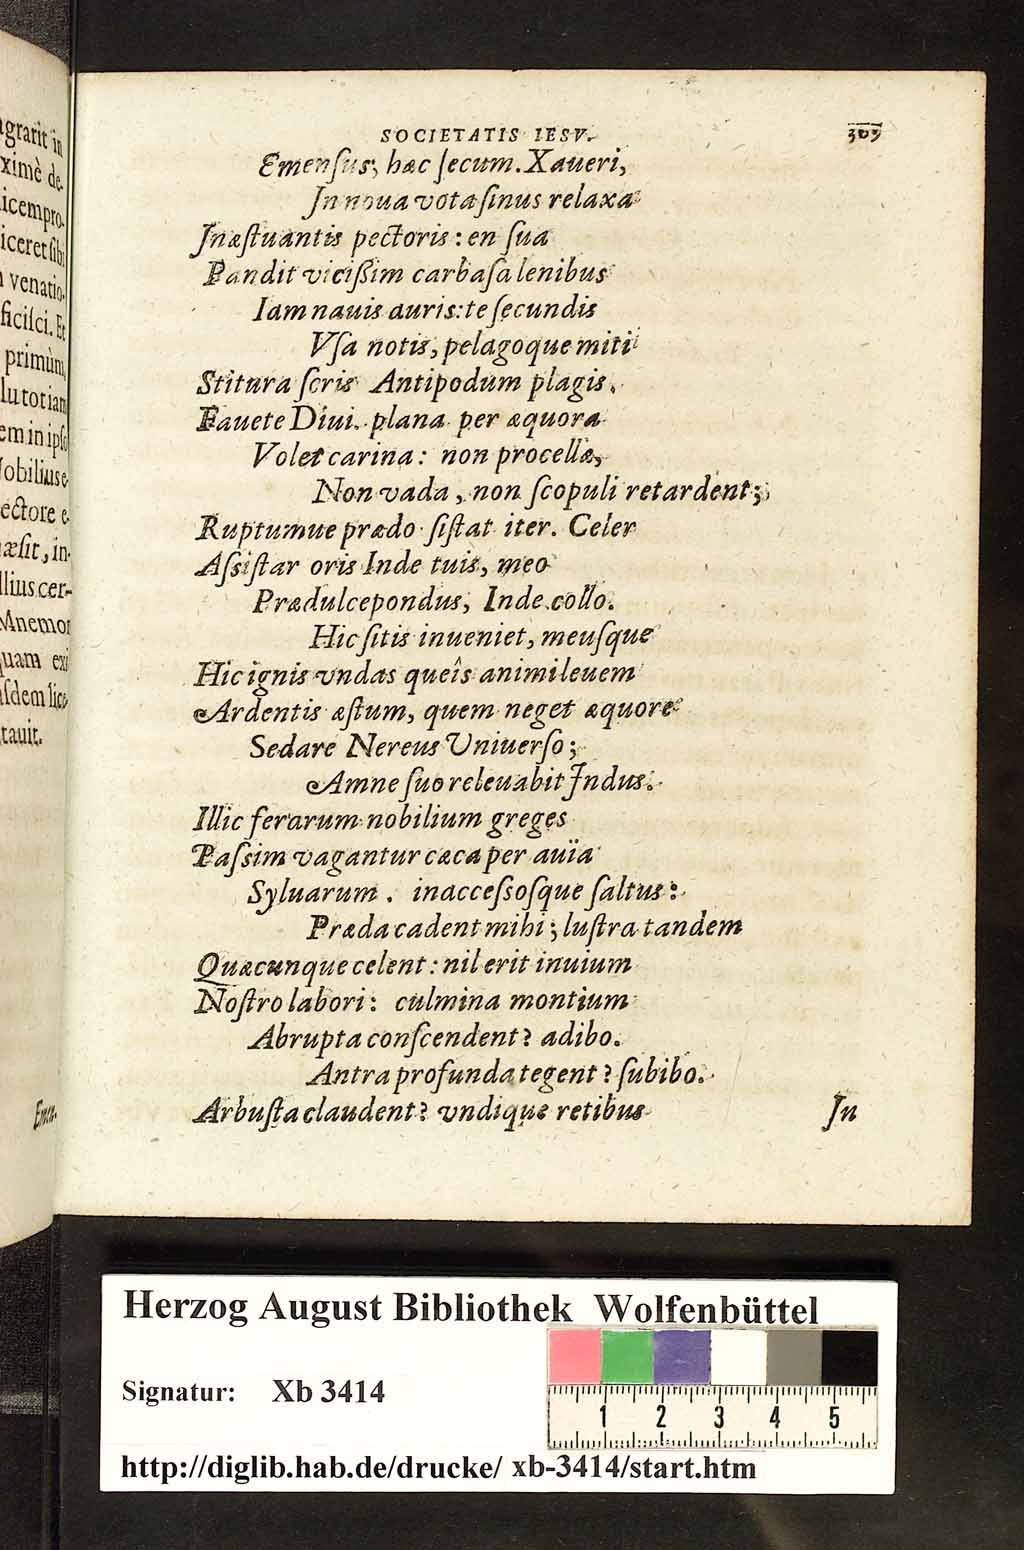 agrarit in
ximè de-
icempro-
iceretsibi
venatio-
ficisci. Et
primùm,
lutotiam
em in ipso
Nobilius e-
ectore e-
næsit, in-
llius cer-
Mnemon
quam exi
isdem lice-
tauit.
Emen-
SOCIETATIS IESV. 309
Emenſus; hæc ſecum. Xaueri,
In noua vota ſinus relaxa
Inæſtuantis pectoris: en ſua
Pandit viciſſim carbaſa lenibus
Iam nauis auris: te ſecundis
Vſa notis, pelagoque miti
Stitura ſeris Antipodum plagis.
Fauete Diui. plana per æquora
Volet carina: non procellæ,
Non vada, non ſcopuli retardent;
Ruptumue prædo ſiſtat iter. Celer
Aſſiſtar oris Inde tuis, meo
Prædulce pondus, Inde collo.
Hic ſitis inueniet, meuſque
Hic ignis vndas queîs animi leuem
Ardentis æſtum, quem neget æquore
Sedare Nereus Vniuerſo;
Amne ſuo releuabit Indus.
Illic ferarum nobilium greges
Paſſim vagantur cæca per auïa
Syluarum. inacceſſoſque ſaltus:
Præda cadent mihi; luſtra tandem
Quæcunque celent: nil erit inuium
Noſtro labori: culmina montium
Abrupta conſcendent? adibo.
Antra profunda tegent? ſubibo.
Arbuſta claudent? vndique retibus
In
Herzog August Bibliothek Wolfenbüttel
Signatur: Xb 3414
1 2 3 4 5
http://diglib.hab.de/drucke/ xb-3414/start.htm